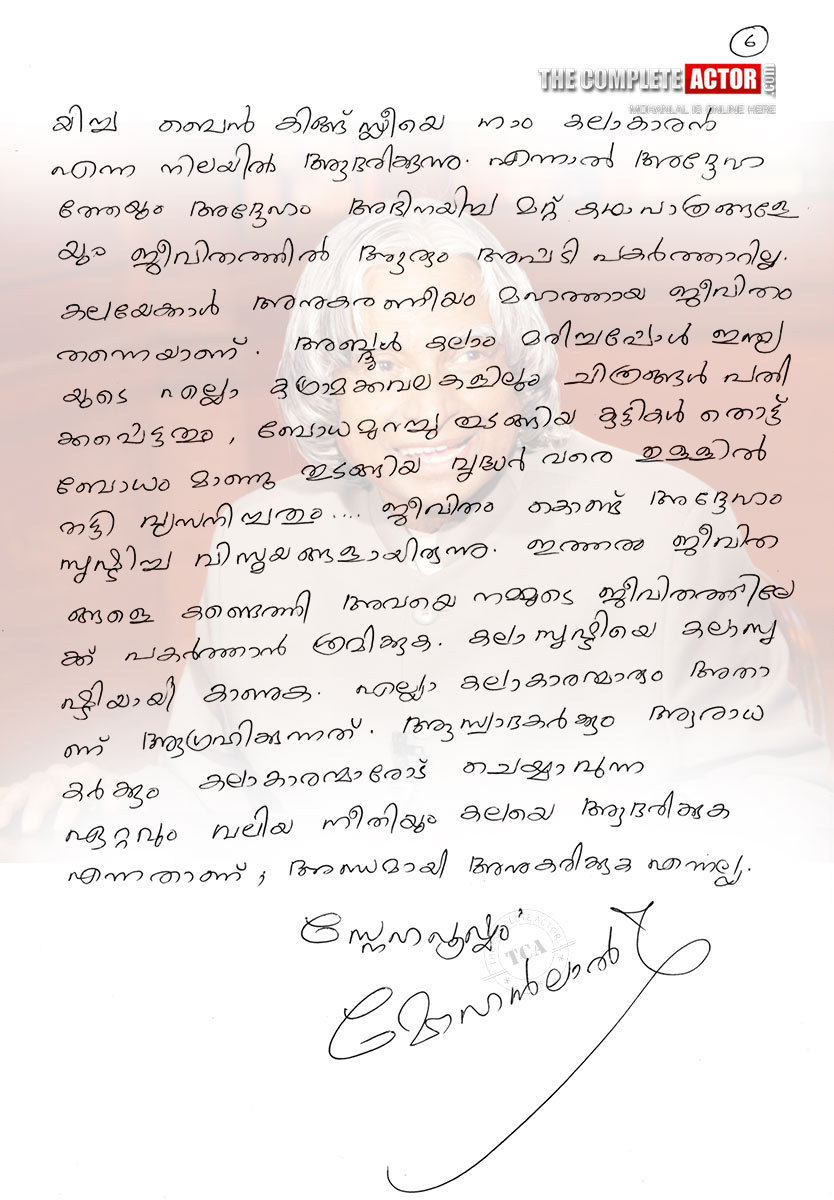 6
THE COMPLETE ACTOR .COM
MOHANLAL IS ONLINE HERE
യിച്ച ബെൻ കിങ്ങ്സ്ലീയെ നാം കലാകാരൻ
എന്ന നിലയിൽ ആദരിക്കുന്നു. എന്നാൽ അദ്ദേഹ
ത്തേയും അദ്ദേഹം അഭിനയിച്ച മറ്റ് കഥാപാത്രങ്ങളേ
യും ജീവിതത്തിൽ ആരും അപ്പടി പകർത്താറില്ല.
കലയേക്കാൾ അനുകരണീയം മഹത്തായ ജീവിതം
തന്നെയാണ്. അബ്ദുൾ കലാം മരിച്ചപ്പോൾ ഇന്ത്യ
യുടെ എല്ലാ കുഗ്രാമക്കവലകളിലും ചിത്രങ്ങൾ പതി
ക്കപ്പെട്ടതും, ബോധമുറച്ചു തുടങ്ങിയ കുട്ടികൾ തൊട്ട്
ബോധം മാഞ്ഞു തുടങ്ങിയ വൃദ്ധർ വരെ ഉള്ളിൽ
തട്ടി വ്യസനിച്ചതും.... ജീവിതം കൊണ്ട് അദ്ദേഹം
സൃഷ്ടിച്ച വിസ്മയങ്ങളായിരുന്നു. ഇത്തരം ജീവിത
ങ്ങളെ കണ്ടെത്തി അവയെ നമ്മുടെ ജീവിതത്തിലേ
ക്ക് പകർത്താൻ ശ്രമിക്കുക. കലാസൃഷ്ടിയെ കലാസൃ
ഷ്ടിയായി കാണുക. എല്ലാ കലാകാരന്മാരും അതാ
ണ് ആഗ്രഹിക്കുന്നത്. ആസ്വാദകർക്കും ആരാധ
കർക്കും കലാകാരന്മാരോട് ചെയ്യാവുന്ന
ഏറ്റവും വലിയ നീതിയും കലയെ ആദരിക്കുക
എന്നതാണ്; അന്ധമായി അനുകരിക്കുക എന്നല്ല.
സ്നേഹപൂർവ്വം
മോഹൻലാൽ
THE COMPLETE ACTOR
TCA